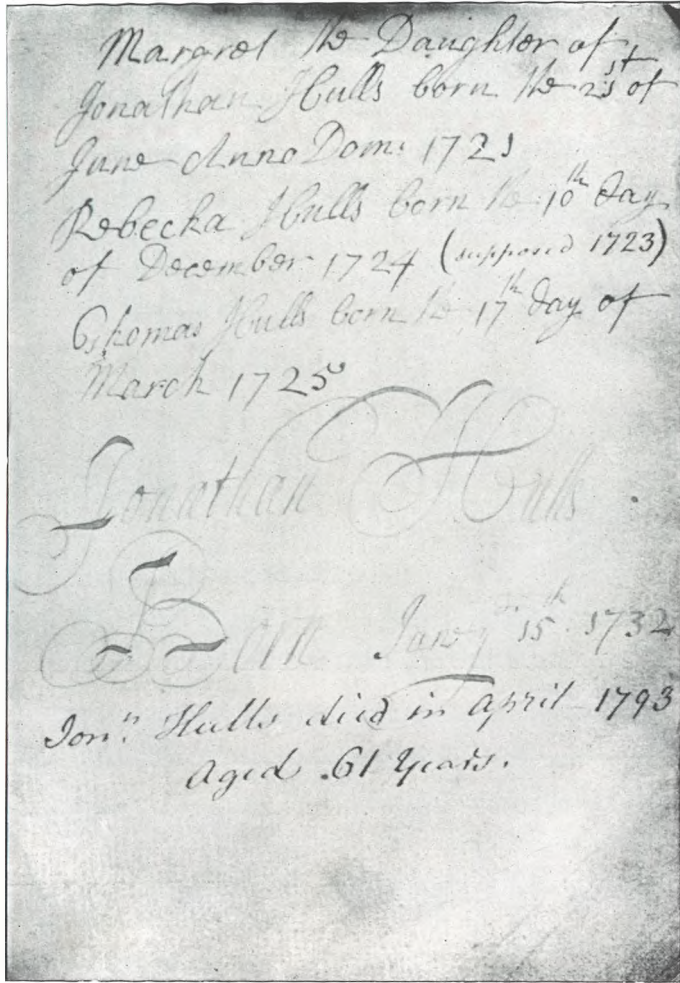 Margret the Daughter of
Jonathan Hulls born the 21st of
June Anno Dom: 1721
Rebecka Hulls born the 10th day
of December 1724 (supposed 1723)
Thomas Hulls born the 17th day of
March 1725
Jonathan Hulls
Born Janry 15th 1732
Jonn Hulls died in April 1793
Aged 61 Years.